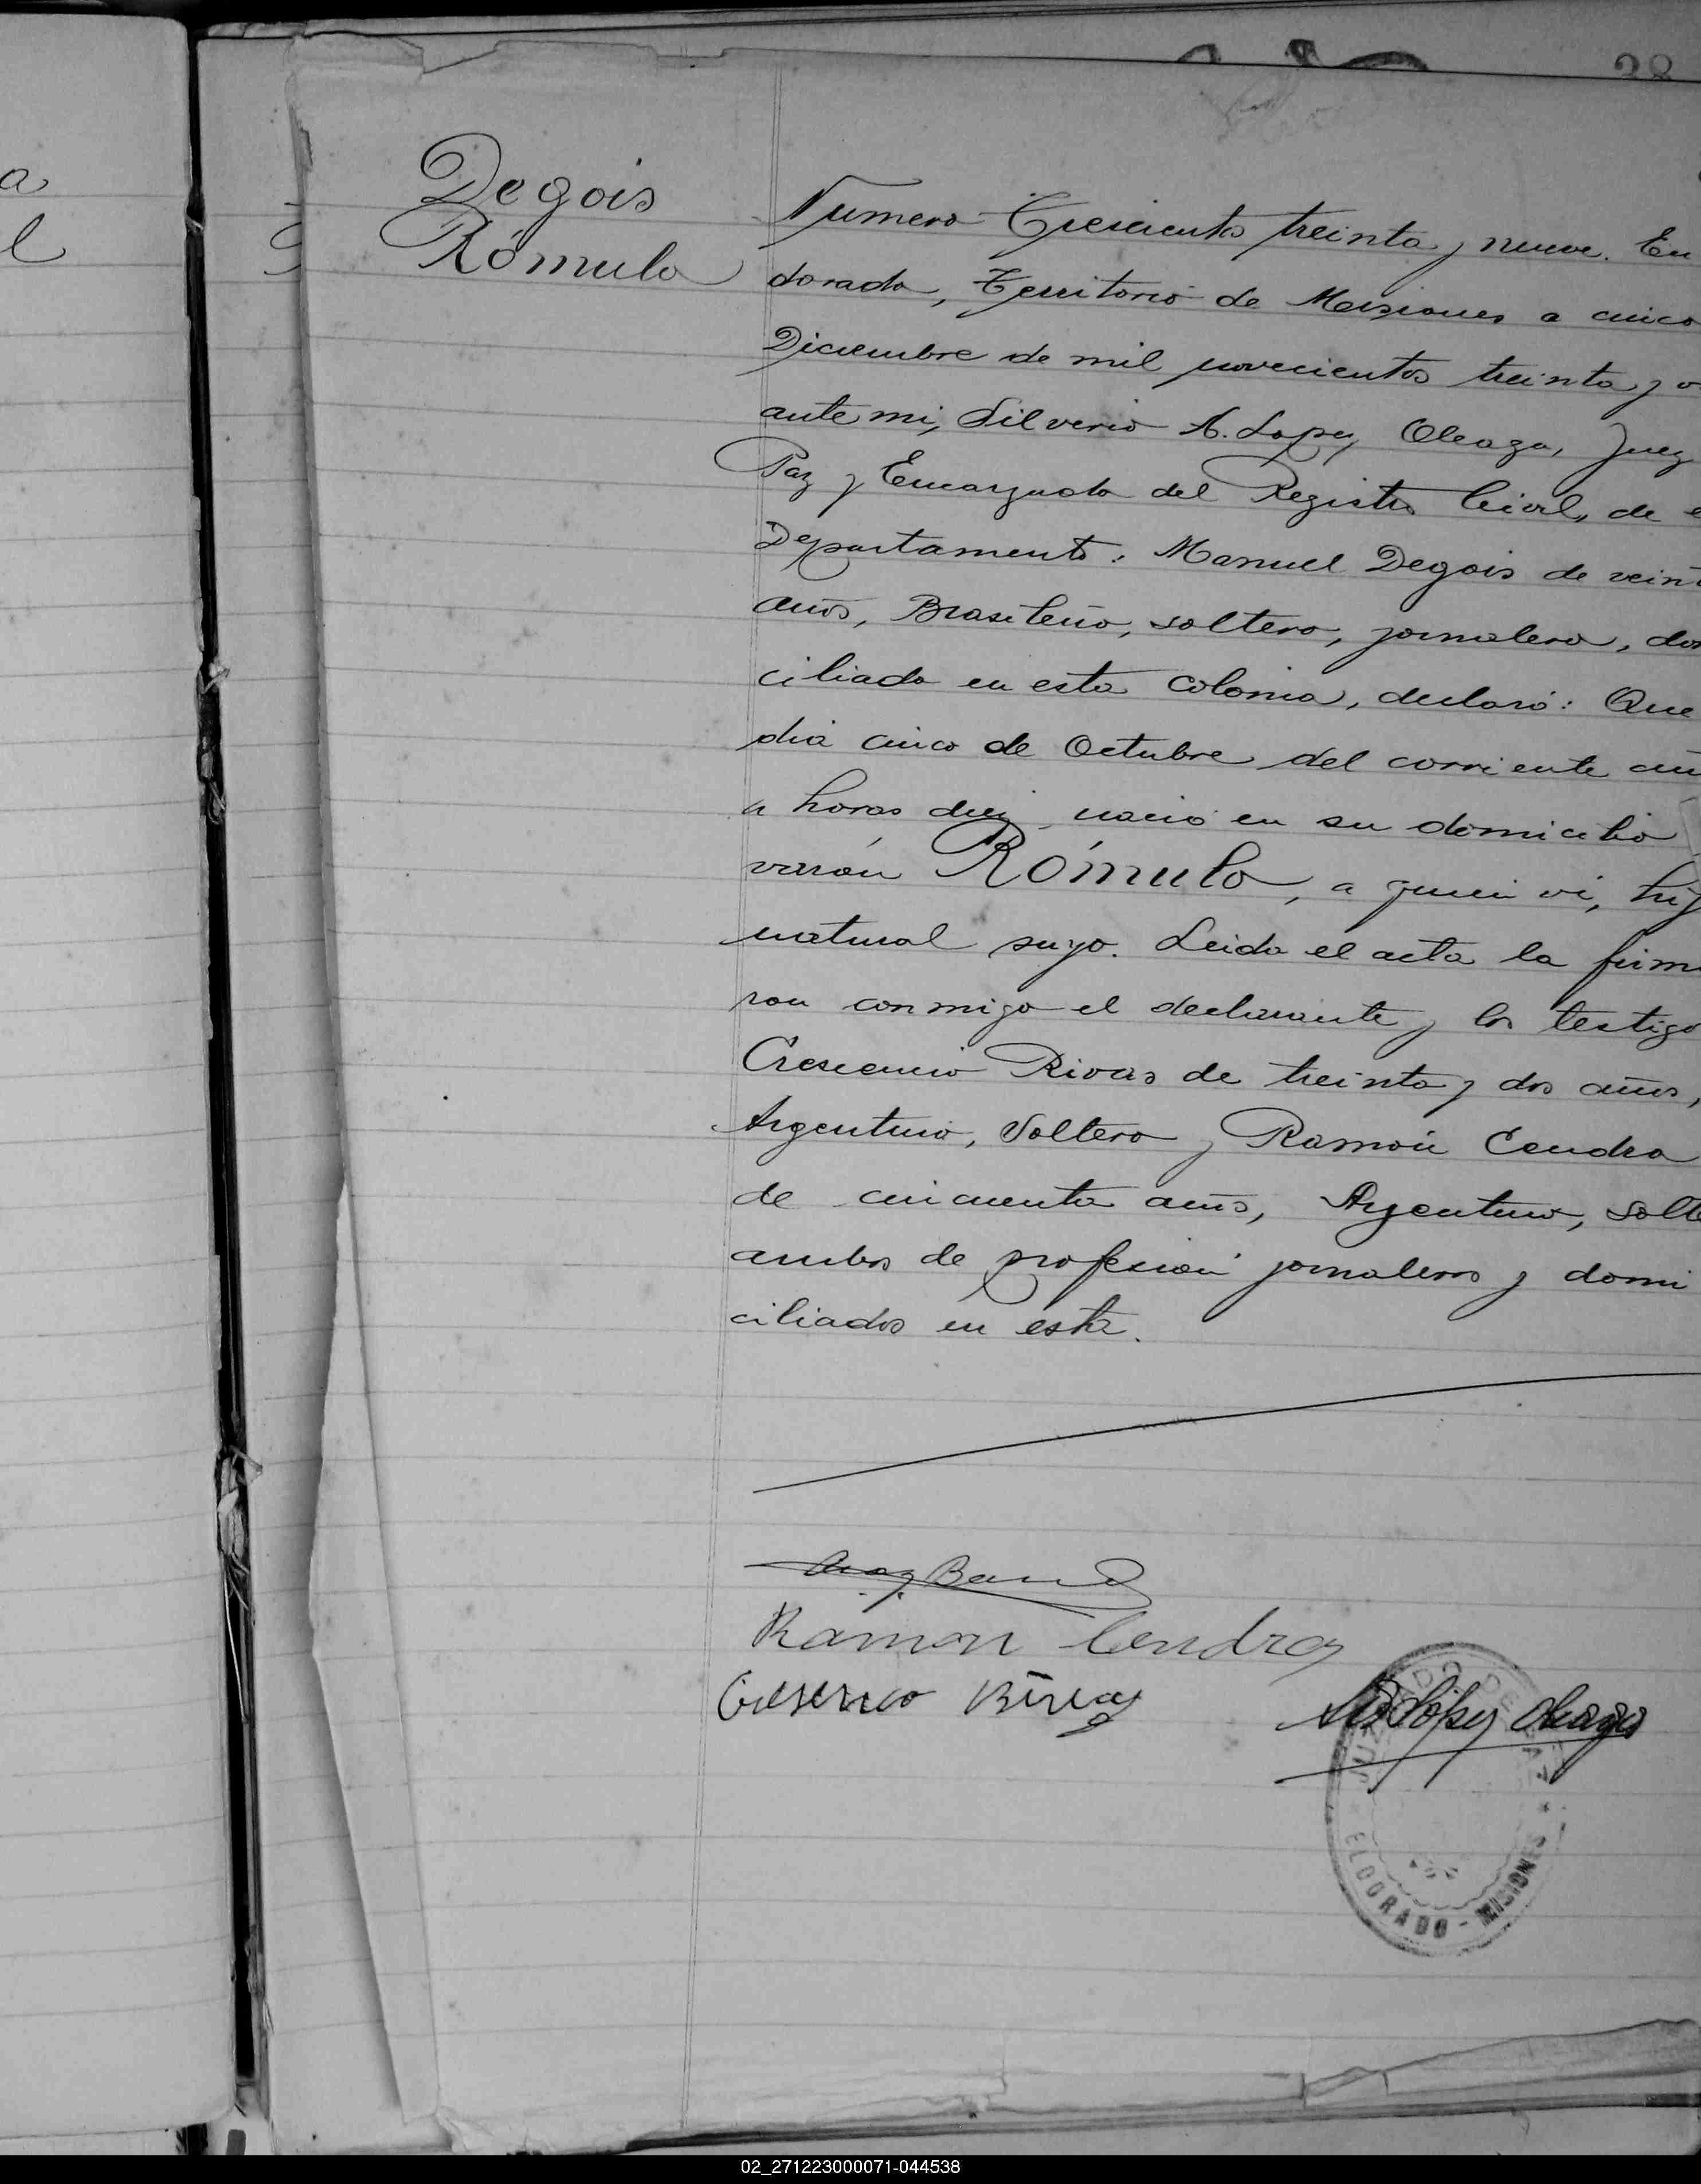 a
l
38
Degois
Rómulo
Numero Trescientos treinta y nueve. En
dorado, Territorio de Misiones a cinco
Diciembre de mil novecientos treinta y o
ante mi, Silverio A. Lopez Oleaga, Juez
Paz y Encargado del Registro Civil, de e
Departamento: Manuel Degois de veint
años, Brasileño, soltero, jornalero, dom
ciliado en esta colonia, declaró: Que
dia cinco de Octubre del corriente añ
a horas diez nació en su domicilio
varón Rómulo, a quien vi, hij
natural suyo. Leida el acta la firma
ron conmigo el declarante y los testigo
Crescencio Rivas de treinta y dos años,
Argentino, Soltero y Ramón Cendra
de cincuenta años, Argentino, solte
ambos de profesión jornaleros y domi
ciliados en esta.
Ramon Cendra
Rivas
Lópes Oleaga
JUZGADO DE PAZ
ELDORADO - MISIONES
02_271223000071-044538